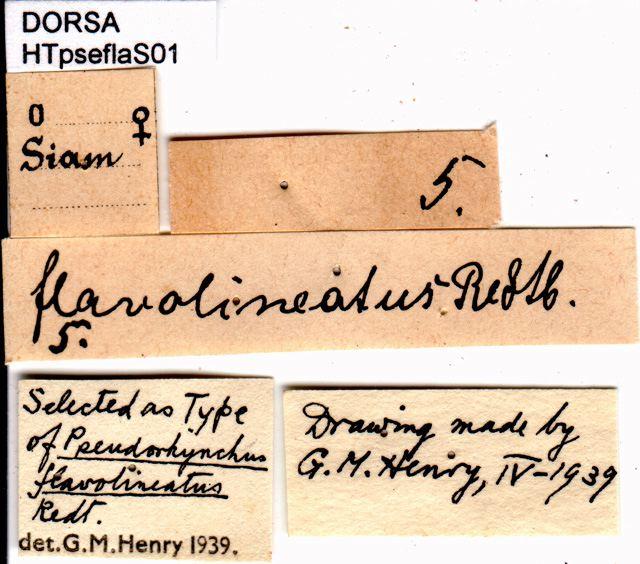 DORSA
HTpseflaS01
O ♀
Siam
5.
flavolineatus Redtb.
5.
Selected as Type
of Pseudorhynchus
flavolineatus
Redt.
det. G. M. Henry 1939.
Drawing made by
G. M. Henry, IV-1939